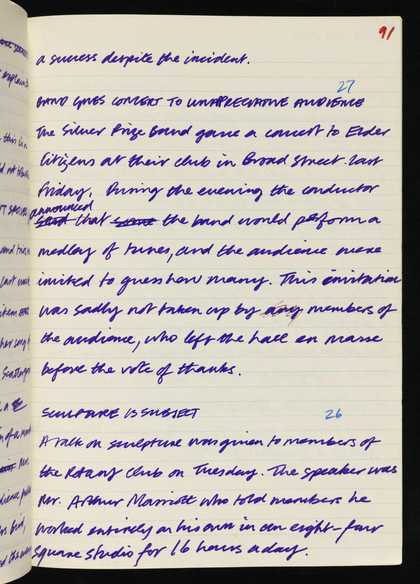 91
a success despite the incident.
27
BAND GIVES CONCERT TO UNAPPRECIATIVE AUDIENCE
The Silver Prize Band gave a concert to Elder
Citizens at their club in Broad Street last
Friday. During the evening the conductor
announced
said that some the band would perform a
medley of tunes, and the audience were
invited to guess how many. This invitation
was sadly not taken up by any members of
the audience, who left the hall en masse
before the vote of thanks.
SCULPTURE IS SUBJECT
26
A talk on sculpture was given to members of
the Rotary Club on Tuesday. The speaker was
Mr. Arthur Marriott who told members he
worked entirely on his own in an eight-foot
square studio for 16 hours a day.